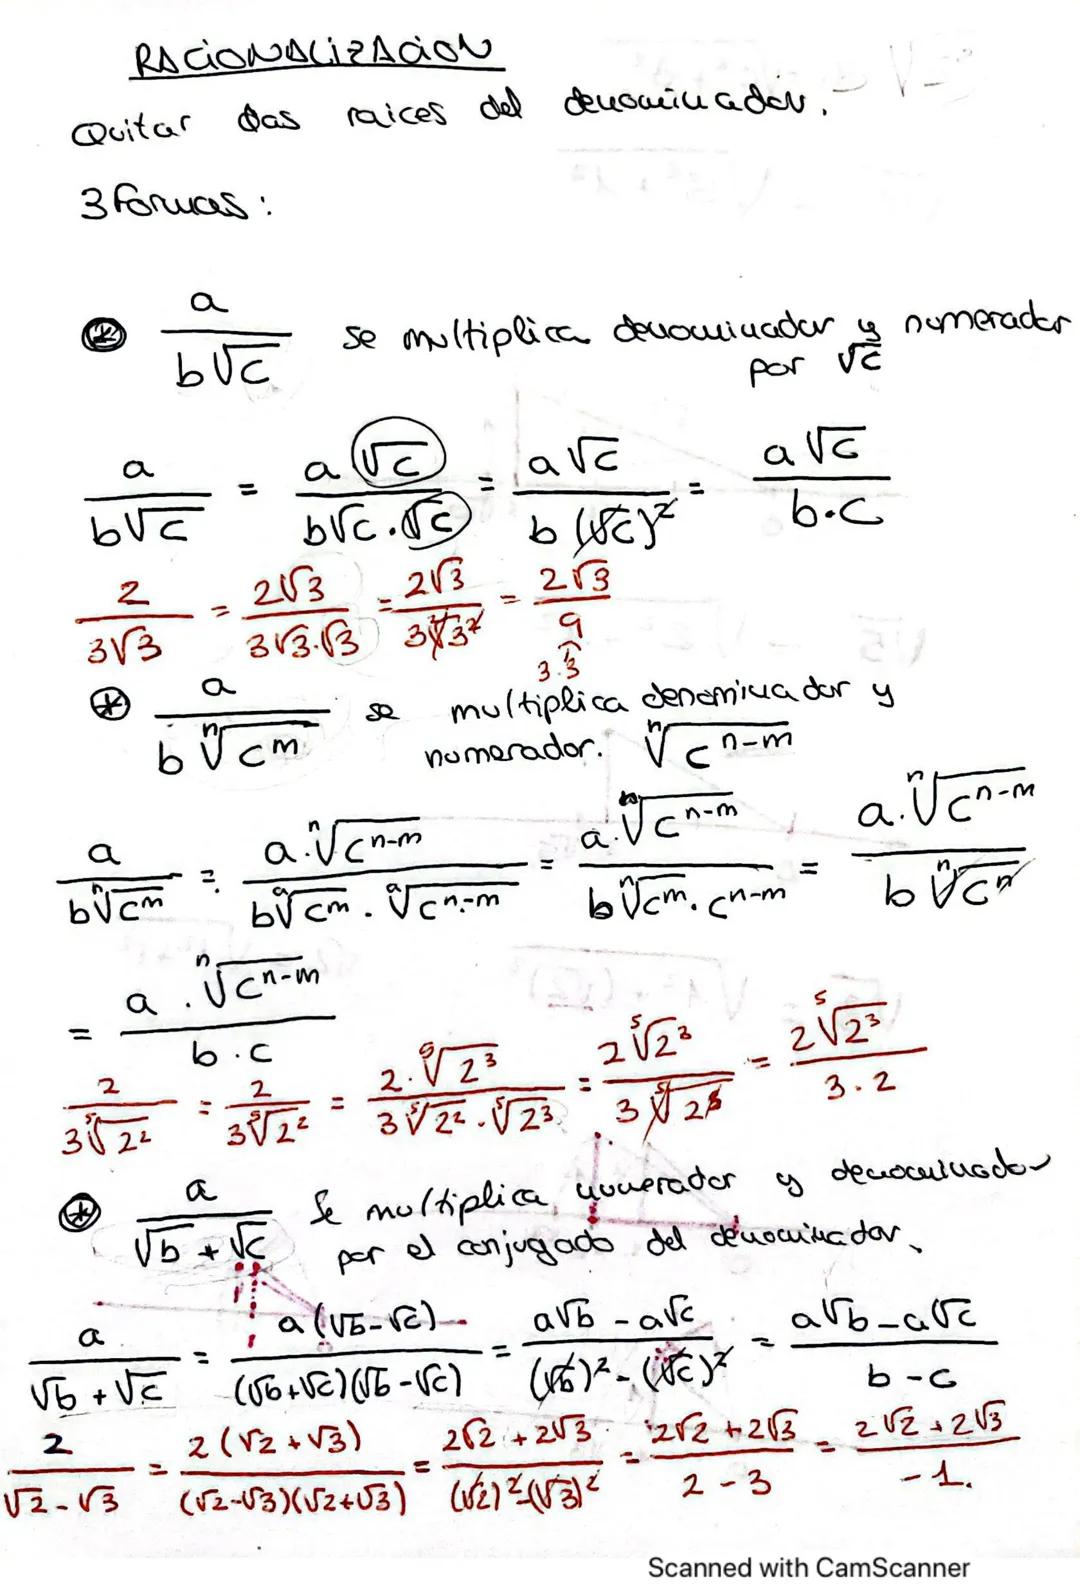 RACIONALIZACION
Quitar las raices del denominador.
3 formas:
a / b√c se multiplica denominador y numerador
por √c
a / b√c = a √c / b√c . √c = a √c / b (√c)² = a √c / b·c
2 / 3√3 = 2√3 / 3√3·√3 = 2√3 / 3√3² = 2√3 / 9
3·3
a / b ⁿ√c^m se multiplica denominador y
numerador. ⁿ√c^n-m
a / b ⁿ√c^m = a · ⁿ√c^n-m / b ⁿ√c^m . ⁿ√c^n-m = a · ⁿ√c^n-m / b ⁿ√c^m · c^n-m = a · ⁿ√c^n-m / b ⁿ√c^n
= a . ⁿ√c^n-m / b · c
2 / 3 ⁵√2² = 2 / 3 ⁵√2² = 2 · ⁵√2³ / 3 ⁵√2² · ⁵√2³ = 2 ⁵√2³ / 3 ⁵√2⁵ = 2 ⁵√2³ / 3 · 2
a / √b + √c Se multiplica numerador y denominador
por el conjugado del denominador.
a / √b + √c = a (√b - √c) / (√b + √c)(√b - √c) = a√b - a√c / (√b)² - (√c)² = a√b - a√c / b - c
2 / √2 - √3 = 2 (√2 + √3) / (√2 - √3)(√2 + √3) = 2√2 + 2√3 / (√2)² - (√3)² = 2√2 + 2√3 / 2 - 3 = 2√2 + 2√3 / -1.
Scanned with CamScanner